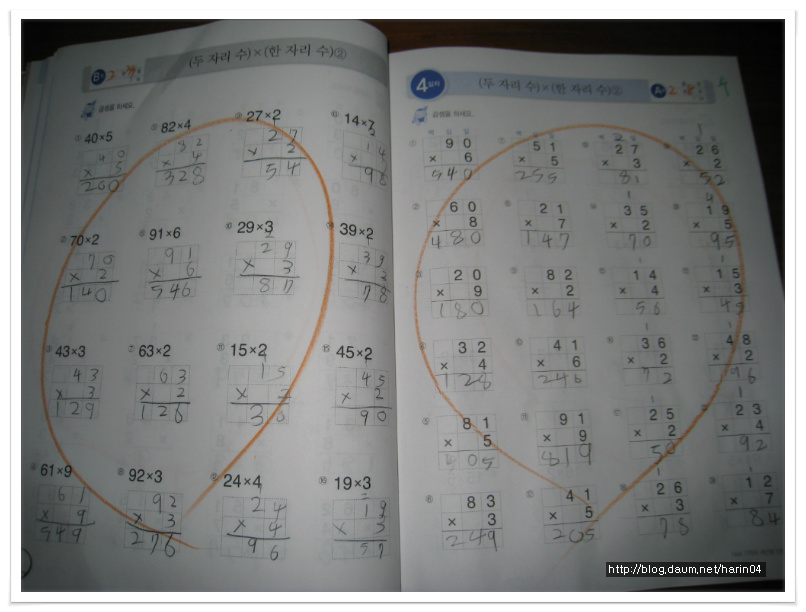 (두 자리 수)×(한 자리 수)②
계산을 하세요.
① 40×5 ⑤ 82×4 ⑨ 27×2 ⑬ 14×7
40 82 27 14
×5 ×4 ×2 ×
200 328 54 98
② 70×2 ⑥ 91×6 ⑩ 29×3 ⑭ 39×2
70 91 29 39
×2 ×6 ×3 ×2
140 546 87 78
③ 43×3 ⑦ 63×2 ⑪ 15×2 ⑮ 45×2
43 63 15 45
×3 ×2 ×2 ×2
129 126 30 90
④ 61×9 ⑧ 92×3 ⑫ 24×4 ⑯ 19×3
61 92 24 19
×9 ×3 ×4 ×3
549 276 96 57
4일차 (두 자리 수)×(한 자리 수)②
계산을 하세요.
90 51 27 26
×6 ×5 ×3 ×2
540 255 81 52
60 21 35 19
×8 ×7 ×2 ×5
480 147 70 95
20 82 14 15
×9 ×2 ×4 ×3
180 164 56 45
32 41 36 48
×4 ×6 ×2 ×2
128 246 72 96
81 91 25 23
×5 ×9 ×2 ×4
405 819 50 92
83 41 26 12
×3 ×5 ×3 ×7
249 205 78 84
http://blog.daum.net/harin04